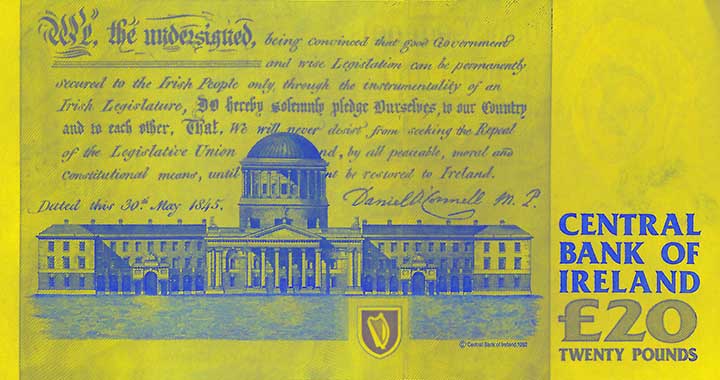 We, the undersigned, being convinced that good Government
and wise Legislation can be permanently
secured to the Irish People only, through the instrumentality of an
Irish Legislature, Do hereby solemnly pledge Ourselves, to our Country
and to each other, That, We will never desist from seeking the Repeal
of the Legislative Union nd, by all peaceable, moral and
Constitutional means, until nt be restored to Ireland.
Dated this 30th May 1845. Daniel O'Connell M.P.
CENTRAL
BANK OF
IRELAND
£20
TWENTY POUNDS
© Central Bank of Ireland 1992